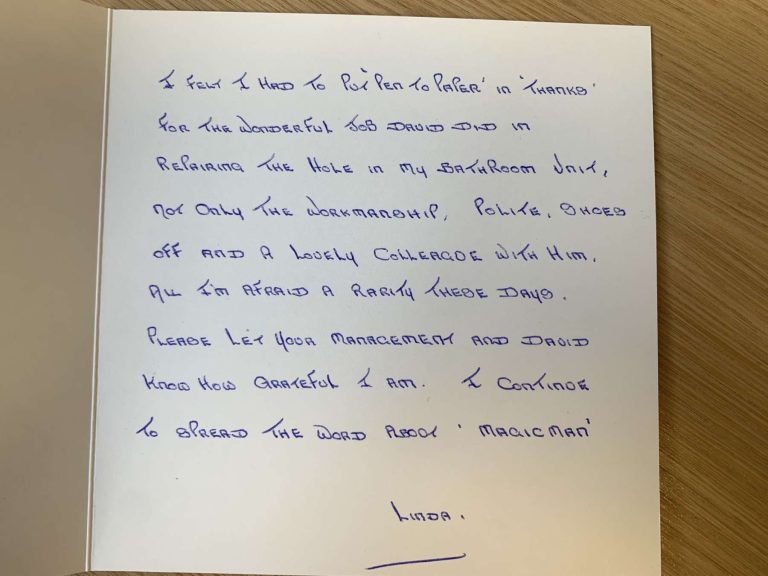 I FELT I HAD TO PUT 'PEN TO PAPER' IN 'THANKS'
FOR THE WONDERFUL JOB DAVID DID IN
REPAIRING THE HOLE IN MY BATHROOM UNIT,
NOT ONLY THE WORKMANSHIP, POLITE, SHOES
OFF AND A LOVELY COLLEAGUE WITH HIM.
ALL I'M AFRAID A RARITY THESE DAYS.
PLEASE LET YOUR MANAGEMENT AND DAVID
KNOW HOW GRATEFUL I AM. I CONTINUE
TO SPREAD THE WORD ABOUT 'MAGICMAN'
LINDA.